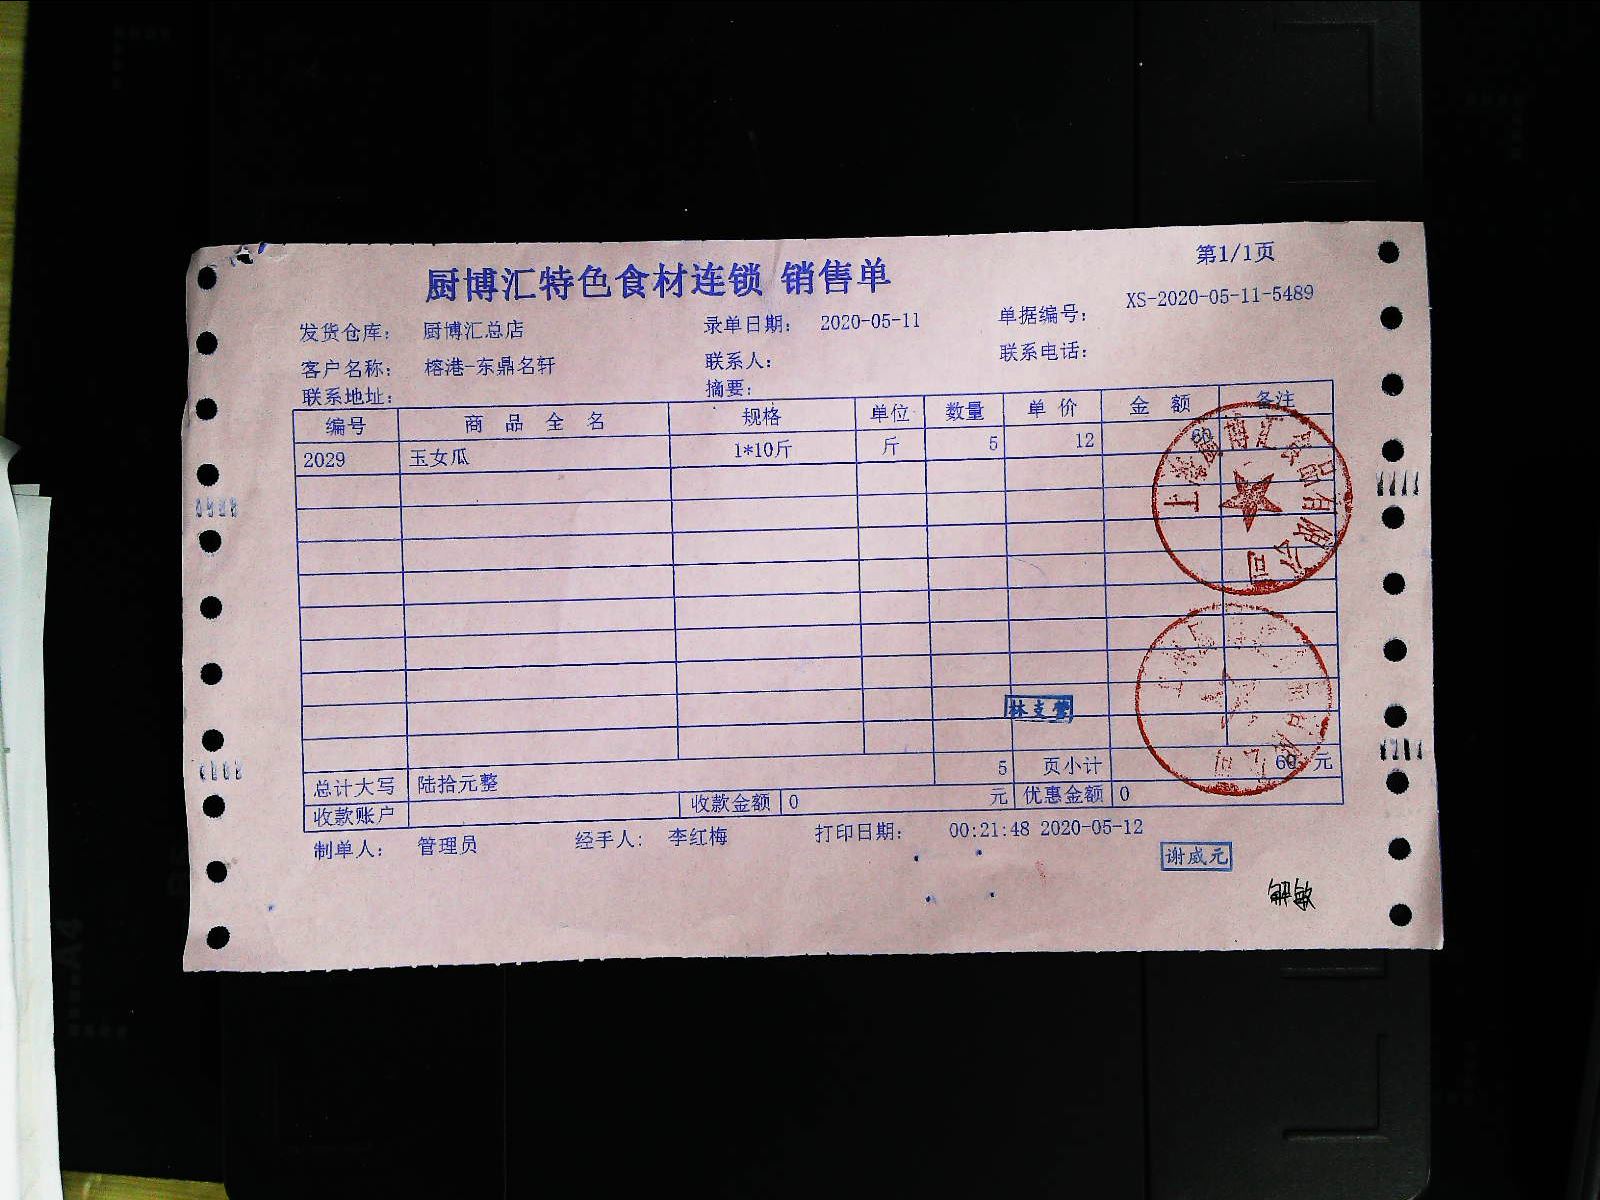 第1/1页
厨博汇特色食材连锁 销售单
发货仓库: 厨博汇总店 录单日期: 2020-05-11 单据编号: XS-2020-05-11-5489
客户名称: 榕港-东鼎名轩 联系人: 联系电话:
联系地址: 摘要:
编号 商品全名 规格 单位 数量 单价 金额 备注
2029 玉女瓜 1*10斤 斤 5 12 60
上海厨博汇食品有限公司
林支莹
总计大写 陆拾元整 5 页小计 60 元
收款账户 收款金额 0 元 优惠金额 0
制单人: 管理员 经手人: 李红梅 打印日期: 00:21:48 2020-05-12
谢威元
解敏